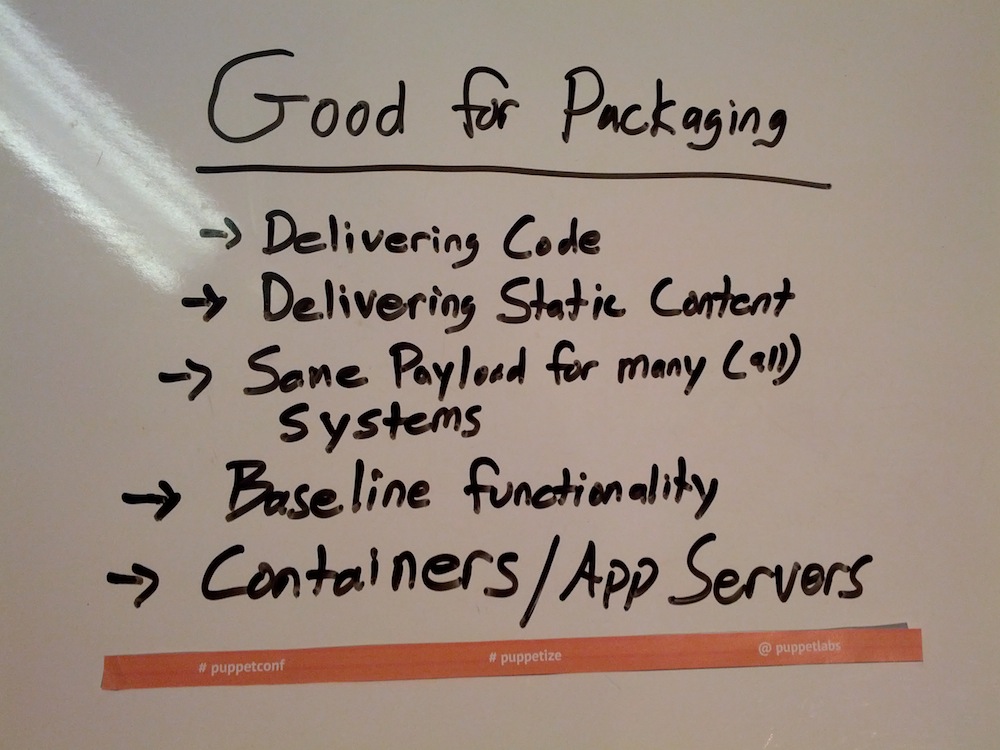 Good for Packaging
→ Delivering Code
→ Delivering Static Content
→ Same Payload for many (all)
systems
→ Baseline functionality
→ Containers/App Servers
# puppetconf # puppetize @ puppetlabs